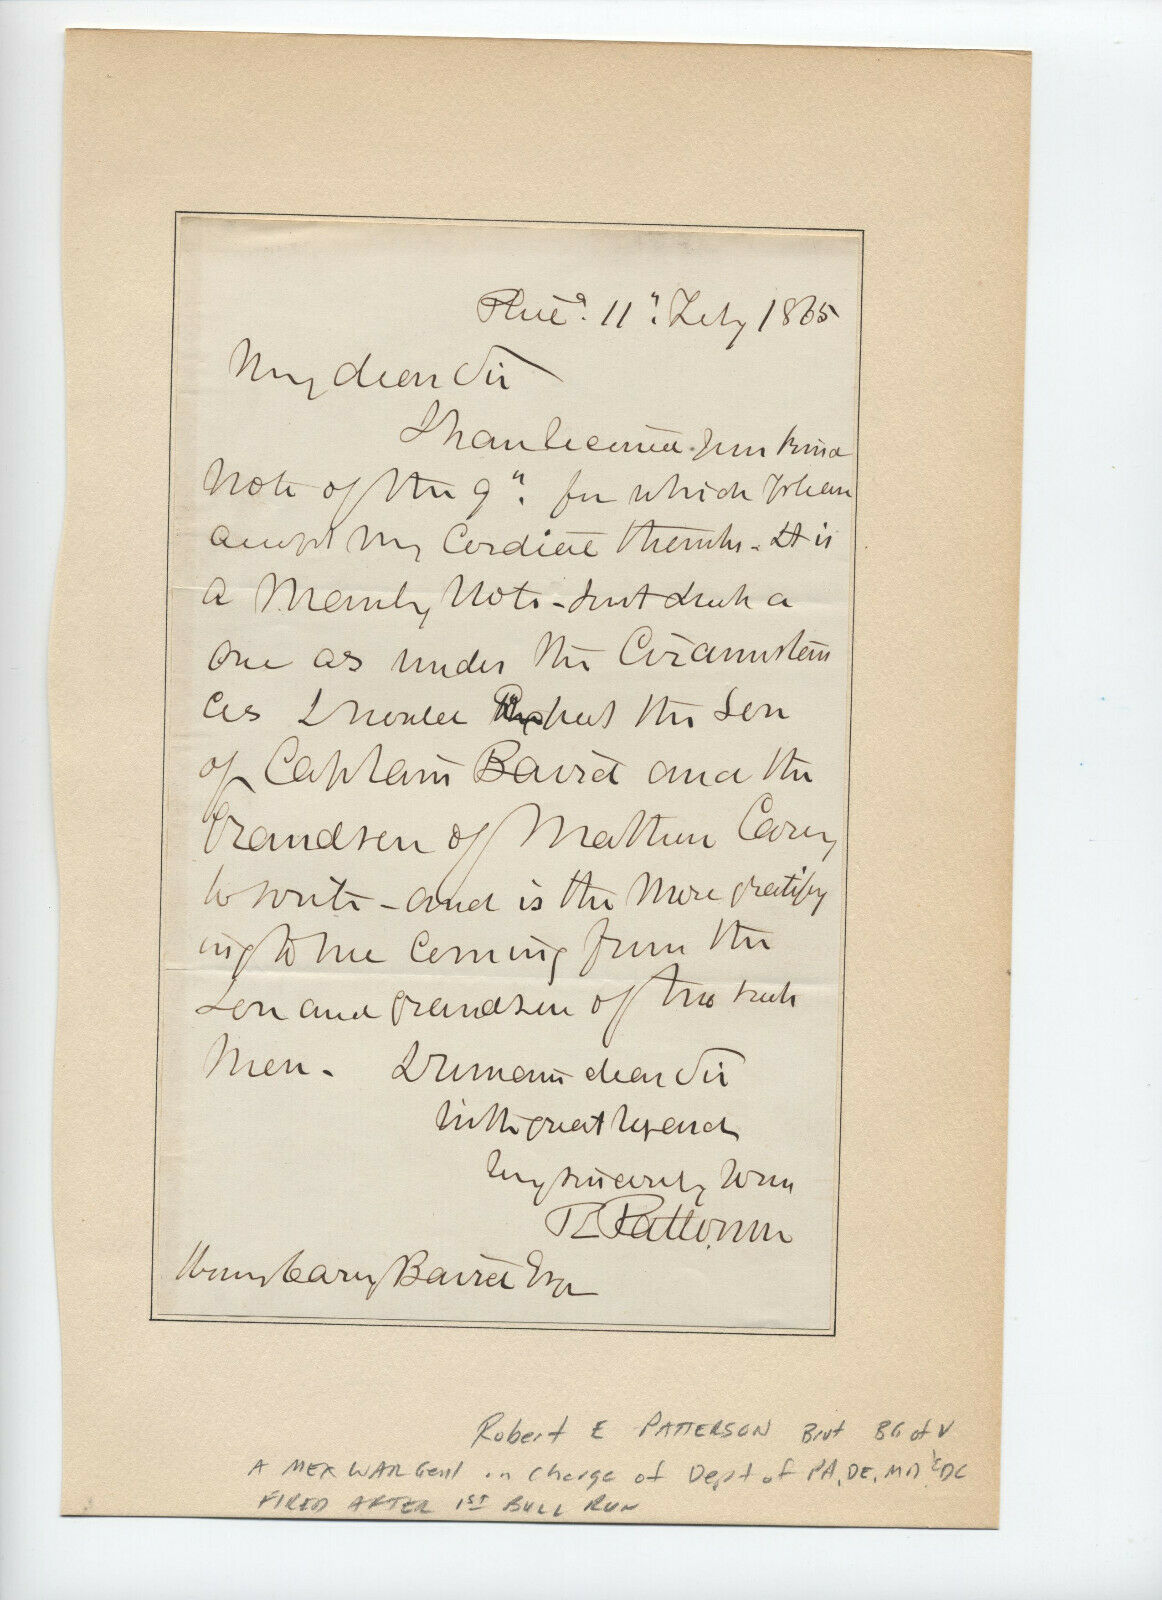 Phila. 11". Feby 1865
My dear Sir
I have received your kind
Note of the 9". for which please
accept my Cordial thanks. It is
a Manly Note - just such a
one as under the Circumstan
ces I would expect the Son
of Captain Baird and the
Grandson of Mathew Carey
to write - and is the More gratify
ing to me Coming from the
Son and grandson of two such
Men. I remain dear Sir
With great regard
Very sincerely Yours
R Patterson
Henry Carey Baird Esq
Robert E PATTERSON Brvt BG of V
A MEX WAR Genl in charge of Dept of PA, DE, MD & DC
FIRED AFTER 1ST BULL RUN